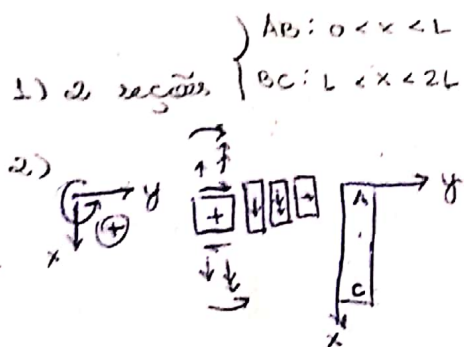 1) 2 seções { AB: 0 < x < L
BC: L < x < 2L
2)
y
x
+
+
A
y
C
x